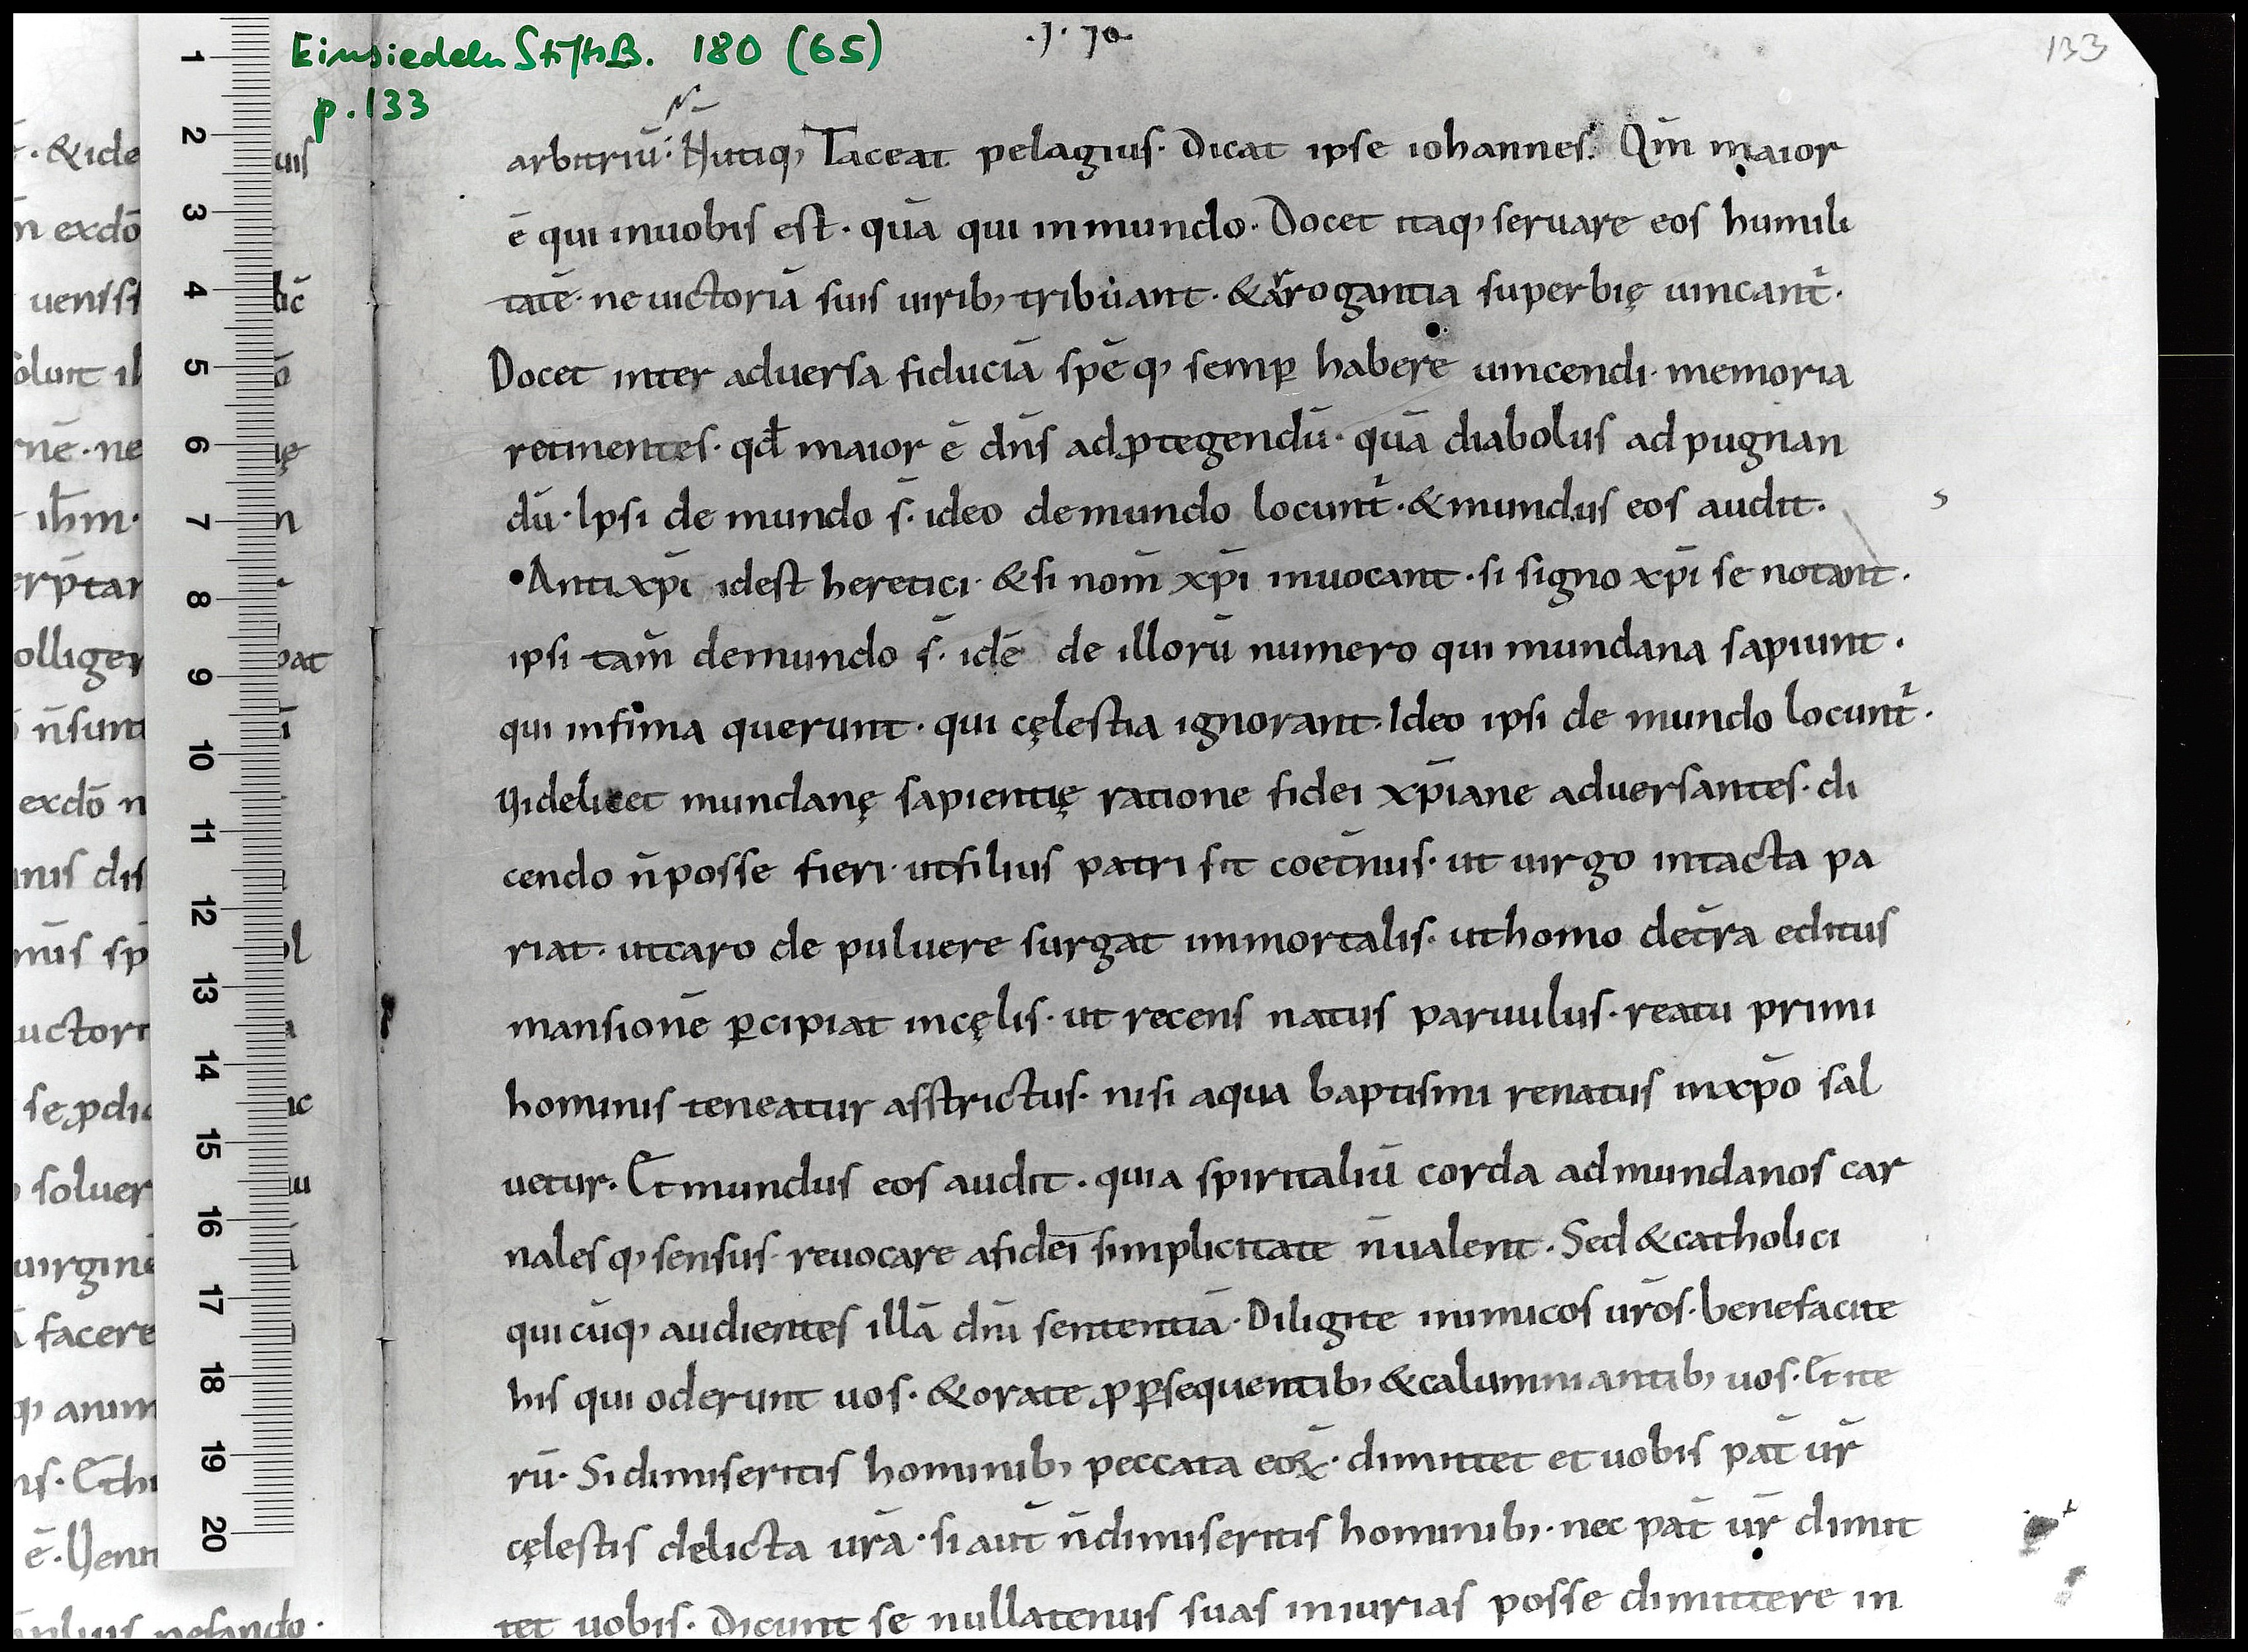 Einsiedeln StiftsB. 180 (65)
p. 133
.J. 70
133
arbitriū. Hutiq; Taceat pelagius. Dicat ipse iohannes. Qm̄ maior
ē qui inuobis est. quā qui inmundo. Docet itaq; seruare eos humili
tatē. ne uictoriā suis uirib; tribuant. &arrogantia superbię uincant̄.
Docet inter aduersa fiduciā spēq; semp̱ habere uincendi. memoria
retinentes. qd̄ maior ē dn̄s adꝓtegendū. quā diabolus adpugnan
dū. Ipsi de mundo s̄. ideo demundo locunt̄. &mundus eos audit.
Antixp̄i idest heretici. &si nom̄ xp̄i inuocant. si signo xp̄i se notant.
ipsi tam̄ demundo s̄. idē de illorū numero qui mundana sapiunt.
qui infima querunt. qui cęlestia ignorant. Ideo ipsi de mundo locunt̄.
Videlicet mundanę sapientię ratione fidei xp̄iane aduersantes. di
cendo n̄posse fieri. utfilius patri sit coet̄nus. ut uirgo intacta pa
riat. utcaro de puluere surgat immortalis. uthomo det̄ra editus
mansionē ꝑcipiat incęlis. ut recens natus paruulus. reatu primi
hominis teneatur asstrictus. nisi aqua baptismi renatus inxp̄o sal
uetur. Et mundus eos audit. quia spiritaliū corda admundanos car
nalesq; sensus reuocare afidei simplicitate n̄ualent. Sed &catholici
quicūq; audientes illā dn̄i sententiā. Diligite inimicos ur̄os. benefacite
his qui oderunt uos. &orate ꝓ ꝑsequentib; &calumniantib; uos. Et ite
rū. Si dimiseritis hominib; peccata eoꝝ. dimittet et uobis pat̄ ur̄
cęlestis delicta ur̄a. si aut̄ n̄dimiseritis hominib;. nec pat̄ ur̄ dimit
tet uobis. Dicunt se nullatenus suas iniurias posse dimittere in
1
2
3
4
5
6
7
8
9
10
11
12
13
14
15
16
17
18
19
20